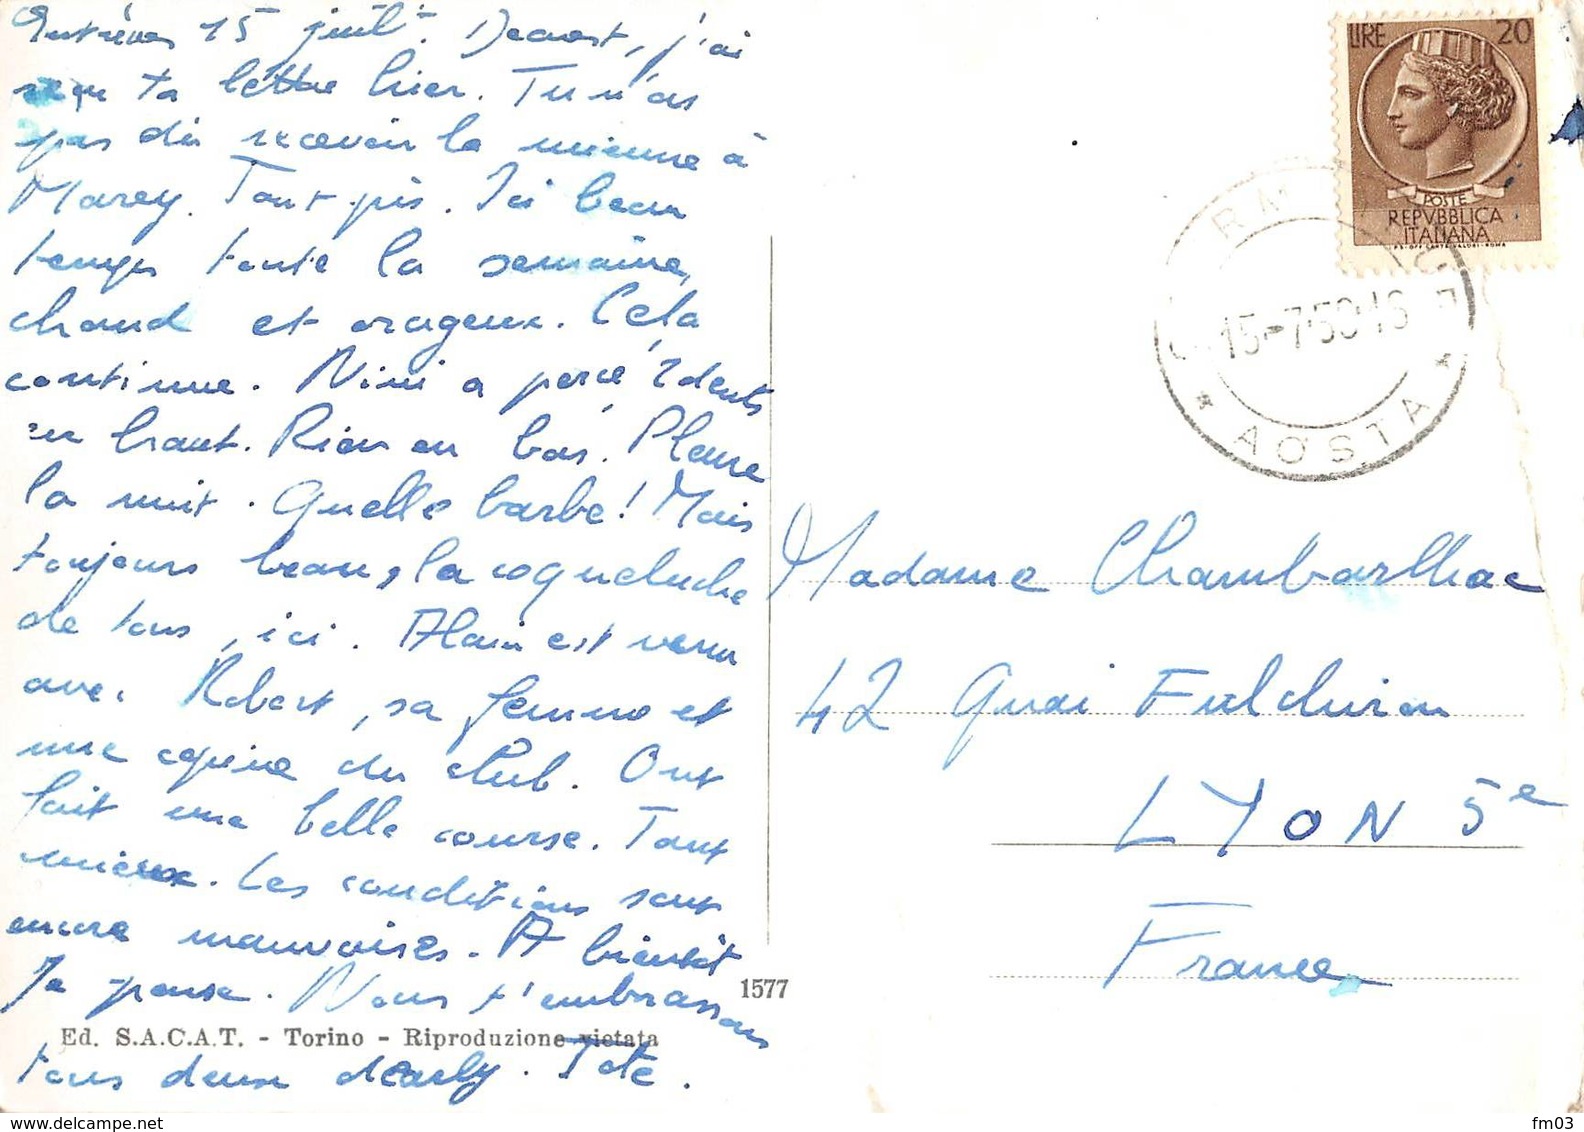 Entrèves 15 juil. Dearest, j'ai
reçu ta lettre hier. Tu n'as
pas dû recevoir la mienne à
Marey. Tant pis. Ici beau
temps toute la semaine,
chaud et orageux. Cela
continue. Nini a percé 2 dents
en haut. Rien en bas. Pleure
la nuit. Quelle barbe! Mais
toujours beau, la coqueluche
de tous, ici. Alain est venu
avec Robert, sa femme et
une copine du club. Ont
fait une belle course. Tant
mieux. Les conditions sont
encore mauvaises. A bientôt
Je pense. Nous t'embrassons
tous deux dearly. Tote.
Ed. S.A.C.A.T. - Torino - Riproduzione vietata
1577
LIRE 20
POSTE
REPVBBLICA
ITALIANA
15-7-59 18
* AOSTA *
Madame Chambarlhac
42 Quai Fulchiron
LYON 5e
France
www.delcampe.net
fm03